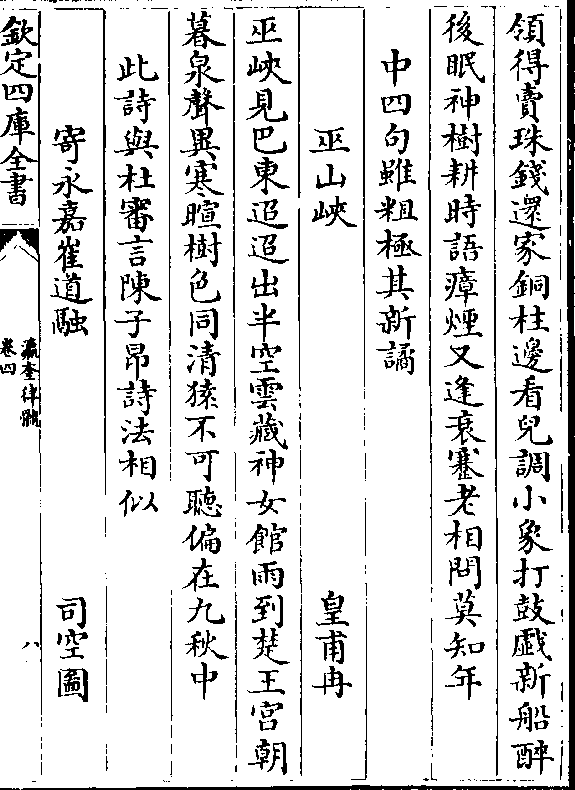 領得賣珠錢還家銅柱邊看兒調小象打鼓戲新船醉
後眠神樹耕時語瘴煙又逢衰蹇老相問莫知年
中四句雖粗極其新譎
巫山峽 皇甫冉
巫峽見巴東迢迢出半空雲藏神女館雨到楚王宮朝
暮泉聲異寒暄樹色同清猿不可聽偏在九秋中
此詩與杜審言陳子昂詩法相似
寄永嘉崔道融 司空圖
欽定四庫全書
瀛奎律髓
卷四
八